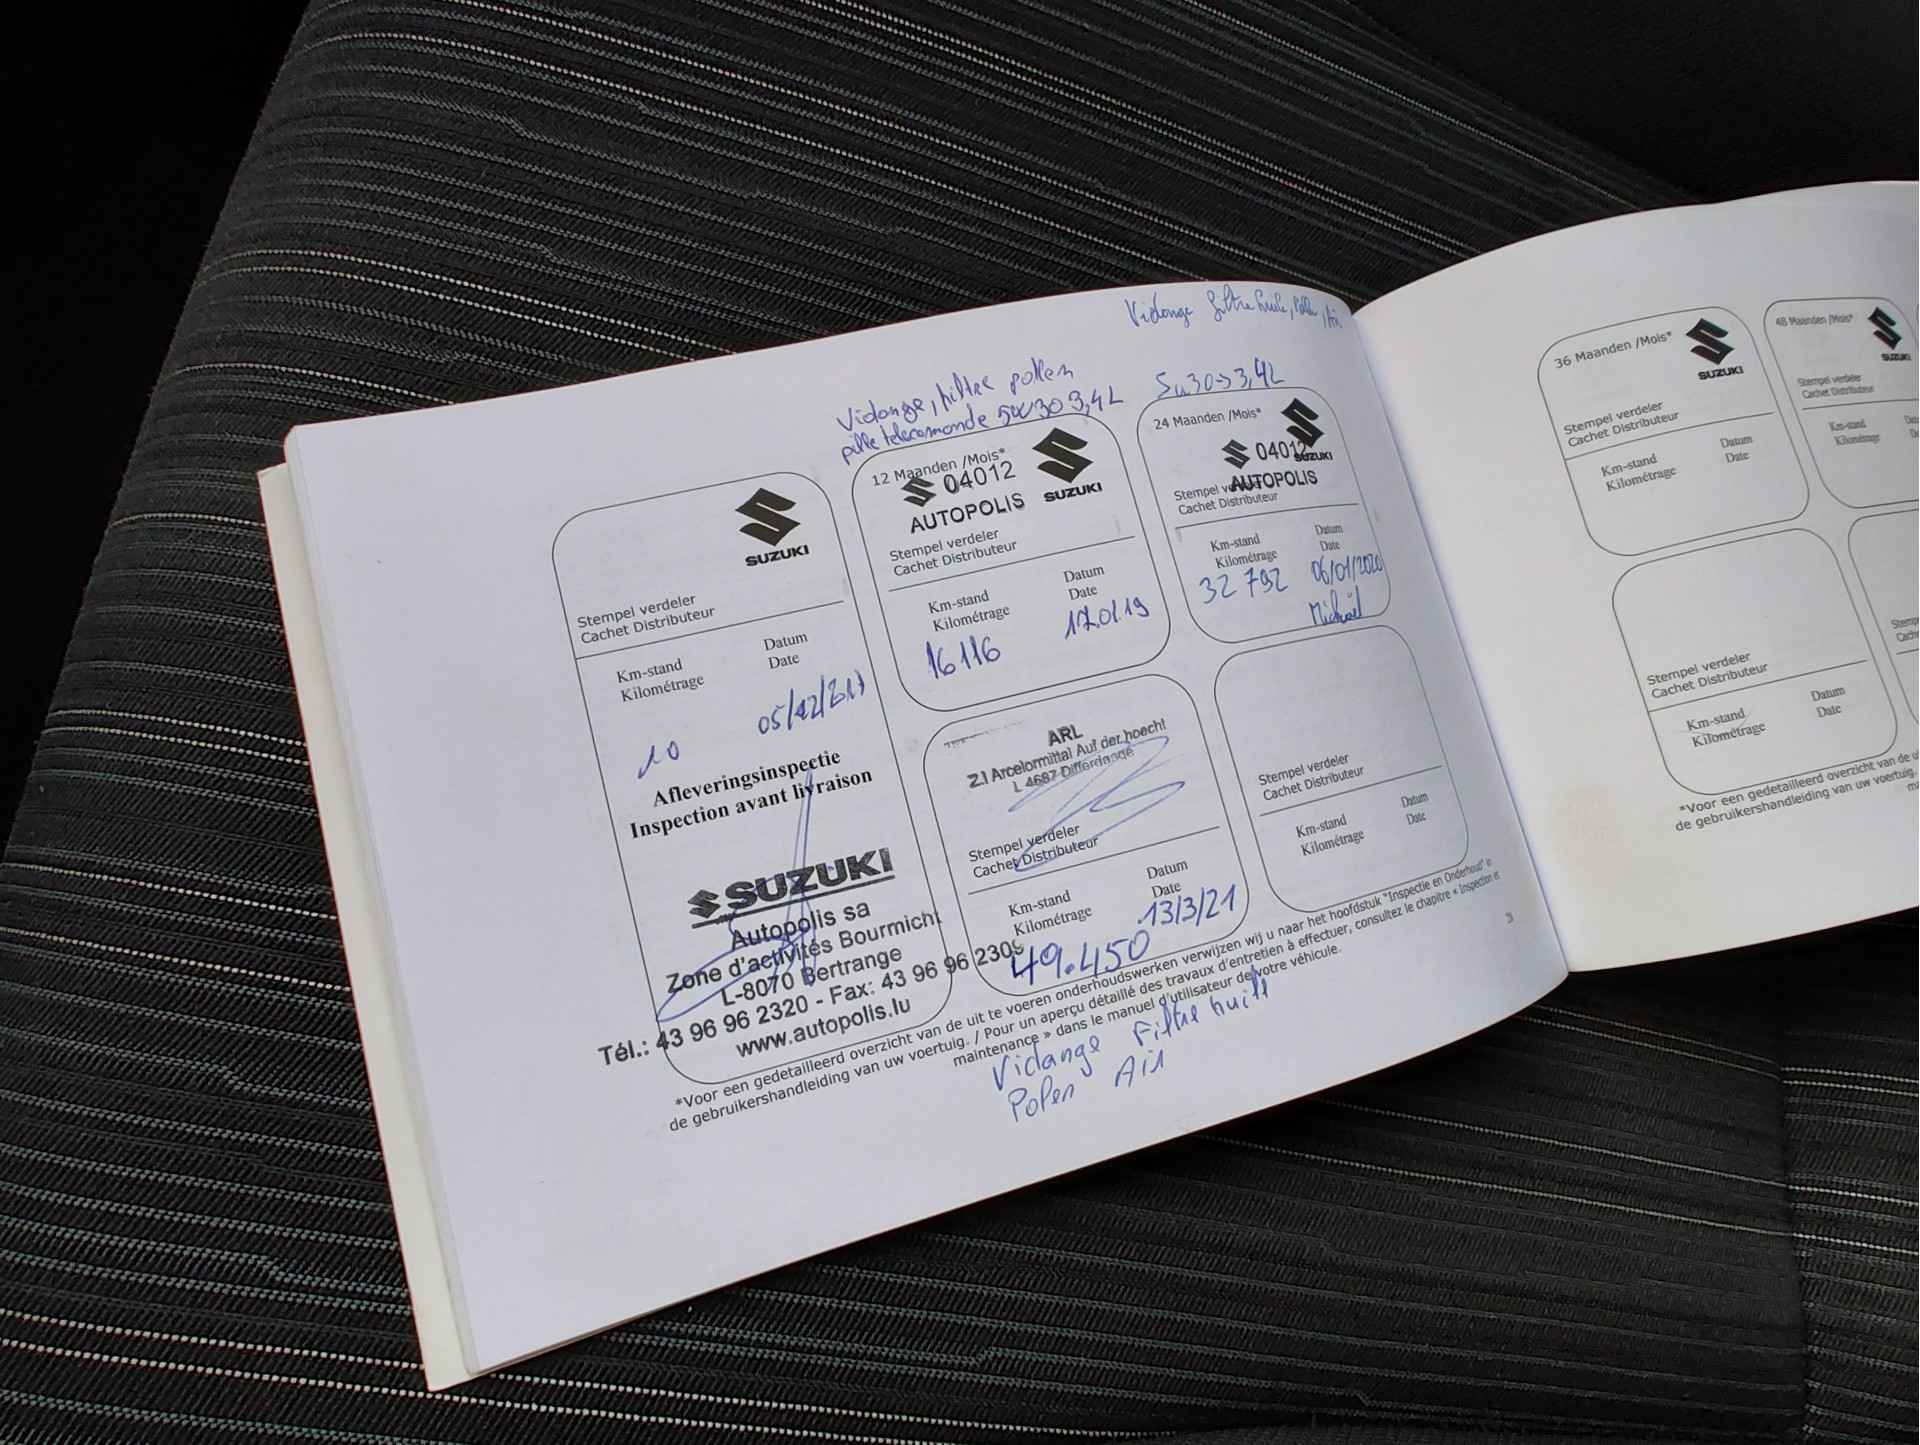 Vidange filtre huile,
5w30→3,4L
Vidange, filtre pollen
pille telecomande 5W30 3,4L
SUZUKI
Stempel verdeler
Cachet Distributeur
Km-stand
Kilométrage
Datum
Date
10
05/12/2017
Afleveringsinspectie
Inspection avant livraison
SUZUKI
Autopolis sa
Zone d'activités Bourmicht
L-8070 Bertrange
Tél.: 43 96 96 2320 - Fax: 43 96 96 2309
www.autopolis.lu
12 Maanden /Mois*
04012
AUTOPOLIS
SUZUKI
Stempel verdeler
Cachet Distributeur
Km-stand
Kilométrage
Datum
Date
16116
17.01.19
24 Maanden /Mois*
04012
SUZUKI
AUTOPOLIS
Stempel verdeler
Cachet Distributeur
Km-stand
Kilométrage
Datum
Date
32 792
06/01/2020
Michaël
ARL
Z.I Arcelormittal Auf der hoecht
L 4687 Differdange
Stempel verdeler
Cachet Distributeur
Km-stand
Kilométrage
Datum
Date
49.450
13/3/21
Stempel verdeler
Cachet Distributeur
Km-stand
Kilométrage
Datum
Date
*Voor een gedetailleerd overzicht van de uit te voeren onderhoudswerken verwijzen wij u naar het hoofdstuk "Inspectie en Onderhoud" in
de gebruikershandleiding van uw voertuig. / Pour un aperçu détaillé des travaux d'entretien à effectuer, consultez le chapitre « Inspection et
maintenance » dans le manuel d'utilisateur de votre véhicule.
Vidange Filtre huile
Polen Air
36 Maanden /Mois*
SUZUKI
Stempel verdeler
Cachet Distributeur
Km-stand
Kilométrage
Datum
Date
48 Maanden /Mois*
SUZUKI
Stempel verdeler
Cachet Distributeur
Km-stand
Kilométrage
Stempel verdeler
Cachet Distributeur
Km-stand
Kilométrage
Datum
Date
*Voor een gedetailleerd overzicht van de
de gebruikershandleiding van uw voertuig.